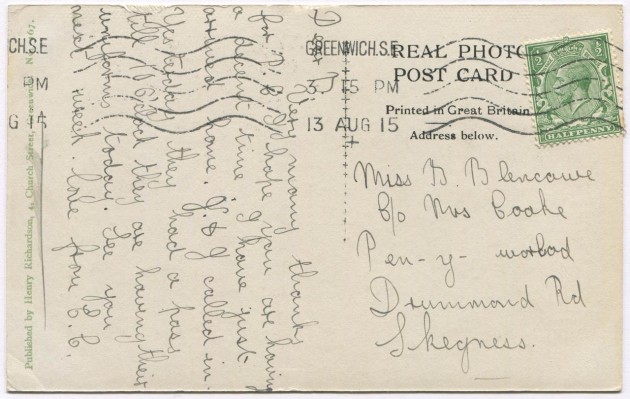 CH.S.E
PM
G 15
GREENWICH.S.E
3.15 PM
13 AUG 15
REAL PHOTO
POST CARD
Printed in Great Britain
Address below.
HALFPENNY
Very many thanks
for P.C. I hope you are having
a decent time. I have just
arrived home. J. & J. called in.
Yesterday they had a pass
till and they are having their
uniforms today. See you
next week. Love from
E.C.
Miss G. Blencowe
C/o Mrs Cooke
Pen-y-worlod
Drummond Rd
Skegness.
Published by Henry Richardson, 4, Church Street, Greenwich. 67.